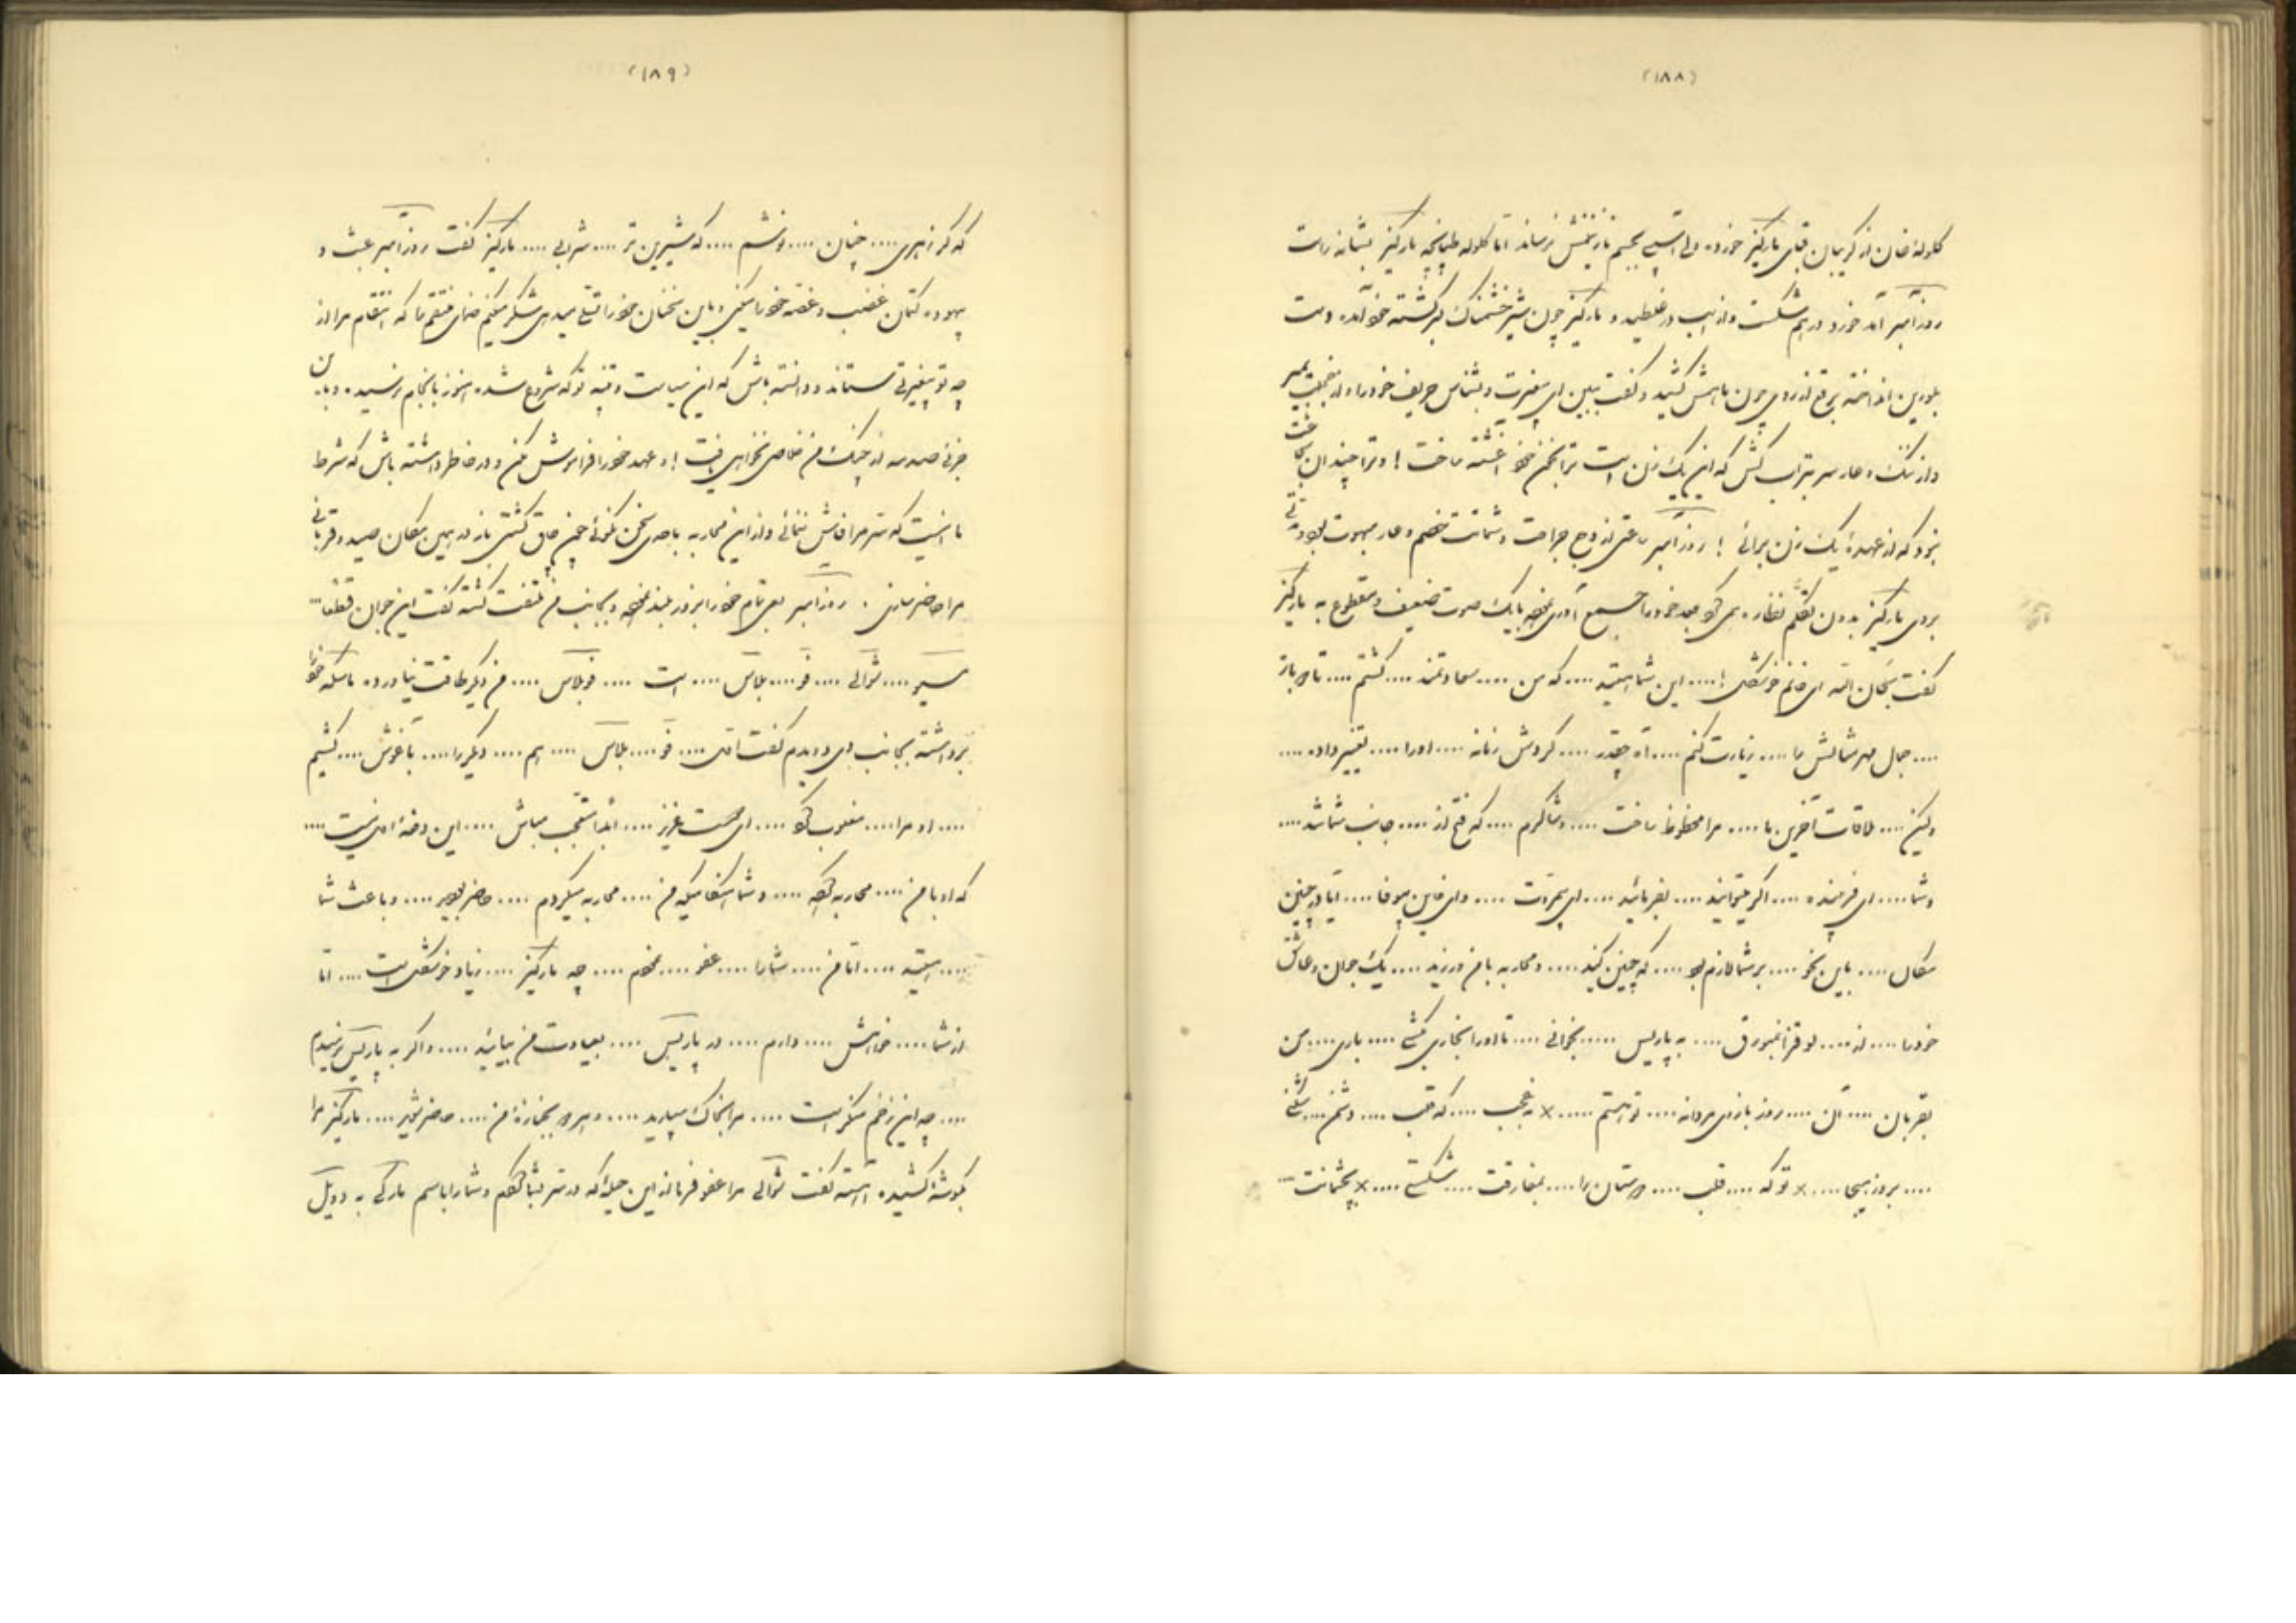 (۱۸۸)
گلوله خان از گریبان قبای مارکیز خورده ولی آسیبی بجسم نازنینش نرساند اما گلوله طپانچه مارکیز بشانه راست
روزآمبر آمد خورد درهم شکست و از اسب در غلطید و مارکیز چون شیر خشمناک برگشته خود آمده دست
بلورین انداخته برقع از روی چون ماهش کشید و گفت ببین ای بیغیرت و بشناس حریف خود را و از خجالت بمیر
و از ننگ و عار سر بتراب کش که این یک زن است ترا بخون خود آغشته ساخت ! و ترا چندان شجاعت
نبود که از عهدهٔ یک زن برائی ! روزآمبر ساعتی از وجع جراحت و شماتت خصم و عار مبهوت بود مدتی
بروی مارکیز بدون تکلم نظاره می‌کرد بعد خود را جمع آوری نموده با یک صوت ضعیف و مقطوع به مارکیز
گفت سبحان الله ای خانم خوشگل ! .... این شما هستید .... که من .... سعادتمند .... گشتم .... تا دوباره
.... جمال مهر مثالش را .... زیارت کنم .... آه چقدر .... گردش زمانه .... او را .... تغییر داده ....
ولیکن .... ملاقات آخرین ما .... مرا محظوظ ساخت .... و شاکرم .... که فتح از .... جانب شما شد ....
و شما .... ای فریبنده .... اگر میتوانید .... بفرمائید .... ای بیمروت .... و ای خاین بیوفا .... آیا در چنین
مکان .... باین نحو .... بر شما لازم بود .... که چنین کنید .... و محاربه با من ورزید .... یک جوان و عاشق
خود را .... از .... لوقزانبورق .... به پاریس .... بخوانی .... تا او را بخاری بکشی .... باری .... من
بقربان .... آن .... روز بازوی مردانه .... تو هستم .... × نه عجب .... که قلب .... دشمن .... شکنی
.... بروز هیجا .... × تو که .... قلب .... دوستان را .... بمفارقت .... شکستی .... × بچشمانت ...
(۱۸۹)
که گر زهری .... چنان .... نوشم .... که شیرین تر .... شرابی .... مارکیز گفت روزآمبر عبث و
بیهوده کتمان غضب و غصه خود را میکنی و باین سخنان خود را تسلی میدهی شکر میکنم خدای منتقم را که انتقام مرا از
چه تو بیغیرتی ستاند و دانسته باش که این سیاست و تنبیه تو که شروع شده هنوز بانجام نرسیده و باین
جزئی صدمه از چنگ من خلاصی نخواهی یافت ! و عهد خود را فراموش مکن و در خاطر داشته باش که شرط
ما اینست که سر مرا فاش ننمائی و از این محاربه باحدی سخن نگوئی
مرا حاضر سازی . روزآمبر سعی تمام خود را بزور بلند نموده و بجانب من ملتفت گشته گفت این جوان قطعا ....
مسیو .... شوالی .... فو .... بلاس .... است .... فوبلاس .... من دیگر طاقت نیاورده ماسکه خود را
برداشته بجانب وی دویدم گفت آه .... فو .... بلاس .... هم .... دیگر را .... باغوش .... کشیم
.... او مرا .... مغلوب کرد .... ای دوست عزیز .... ابدا متعجب مباش .... این دفعهٔ اول نیست ....
که او با من .... محاربه کرده .... و شما هنگامیکه من .... محاربه میکردم .... حاضر بودید .... و باعث شما
.... هستید .... اما من .... شما را .... عفو .... نمودم .... چه مارکیز .... زیاد خوشگل است .... اما
از شما .... خواهش .... دارم .... در پاریس .... بعیادت من بیائید .... و اگر به پاریس نرسیدم
.... چه این زخم منکر است .... مرا بخاک بسپارید .... و بر سر جنازهٔ من .... حاضر شوید .... مارکیز مرا
بگوشهٔ کشیده آهسته گفت شوالی مرا عفو فرما از این حیلهٔ که در ستر بشما کردم و شما را باسم مارکی به دوئل